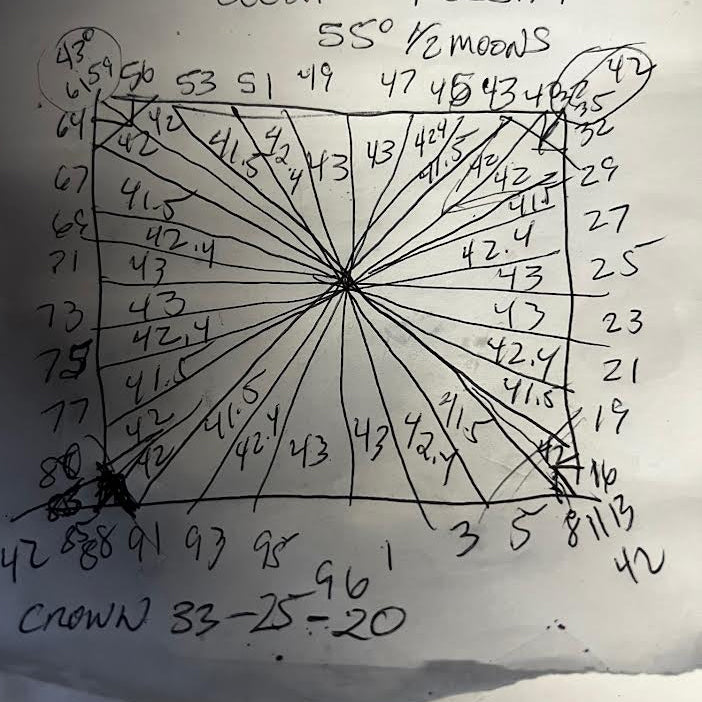 55° 1/2 MOONS
43° 42
61 59 56 53 51 49 47 45 43 40 37 35
64 32
42 41.5 42.4 43 43 42.4 41.5 42 42
67 42 29
41.5 41.5 27
69 42.4 42.4
71 43 43 25
73 43 43 23
75 42.4 42.4 21
77 41.5 41.5 19
42 41.5 41.5 42
80 42 42.4 43 43 42.4 16
42 85 88 91 93 95 96 1 3 5 8 11 13 42
CROWN 33-25-20